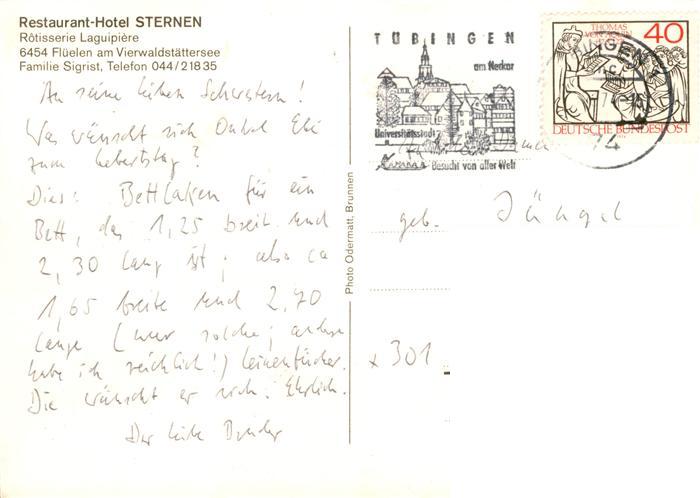 Restaurant-Hotel STERNEN
Rôtisserie Laguipière
6454 Flüelen am Vierwaldstättersee
Familie Sigrist, Telefon 044/2 18 35
An seine lieben Schwestern!
Was wünscht sich Onkel Ebi
zum Geburtstag?
Dies: Bettlaken für ein
Bett, das 1,25 breit und
2,30 lang ist; also ca
1,65 breite und 2,70
lange (nur solche; andere
habe ich reichlich!) Leinentücher.
Die wünscht er sich. Ehrlich.
Der liebe Bruder
Photo Odermatt, Brunnen
TÜBINGEN
am Neckar
Universitätsstadt
Besucht von aller Welt
THOMAS
40
DEUTSCHE BUNDESPOST
74
geb. Jüngel
x 301